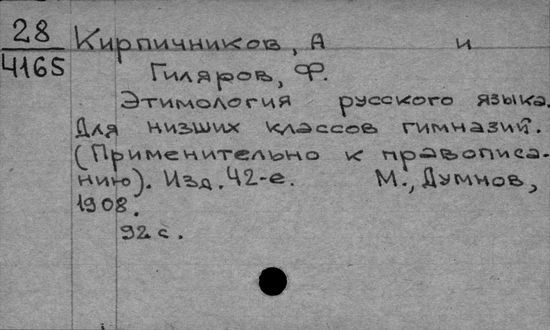 28
4165
Кирпичников, А и
Гиляров, Ф.
Этимология русского языка.
Для низших классов гимназий.
(Применительно к правописа-
нию). Изд. 42-е. М., Думнов,
1908.
92 с.